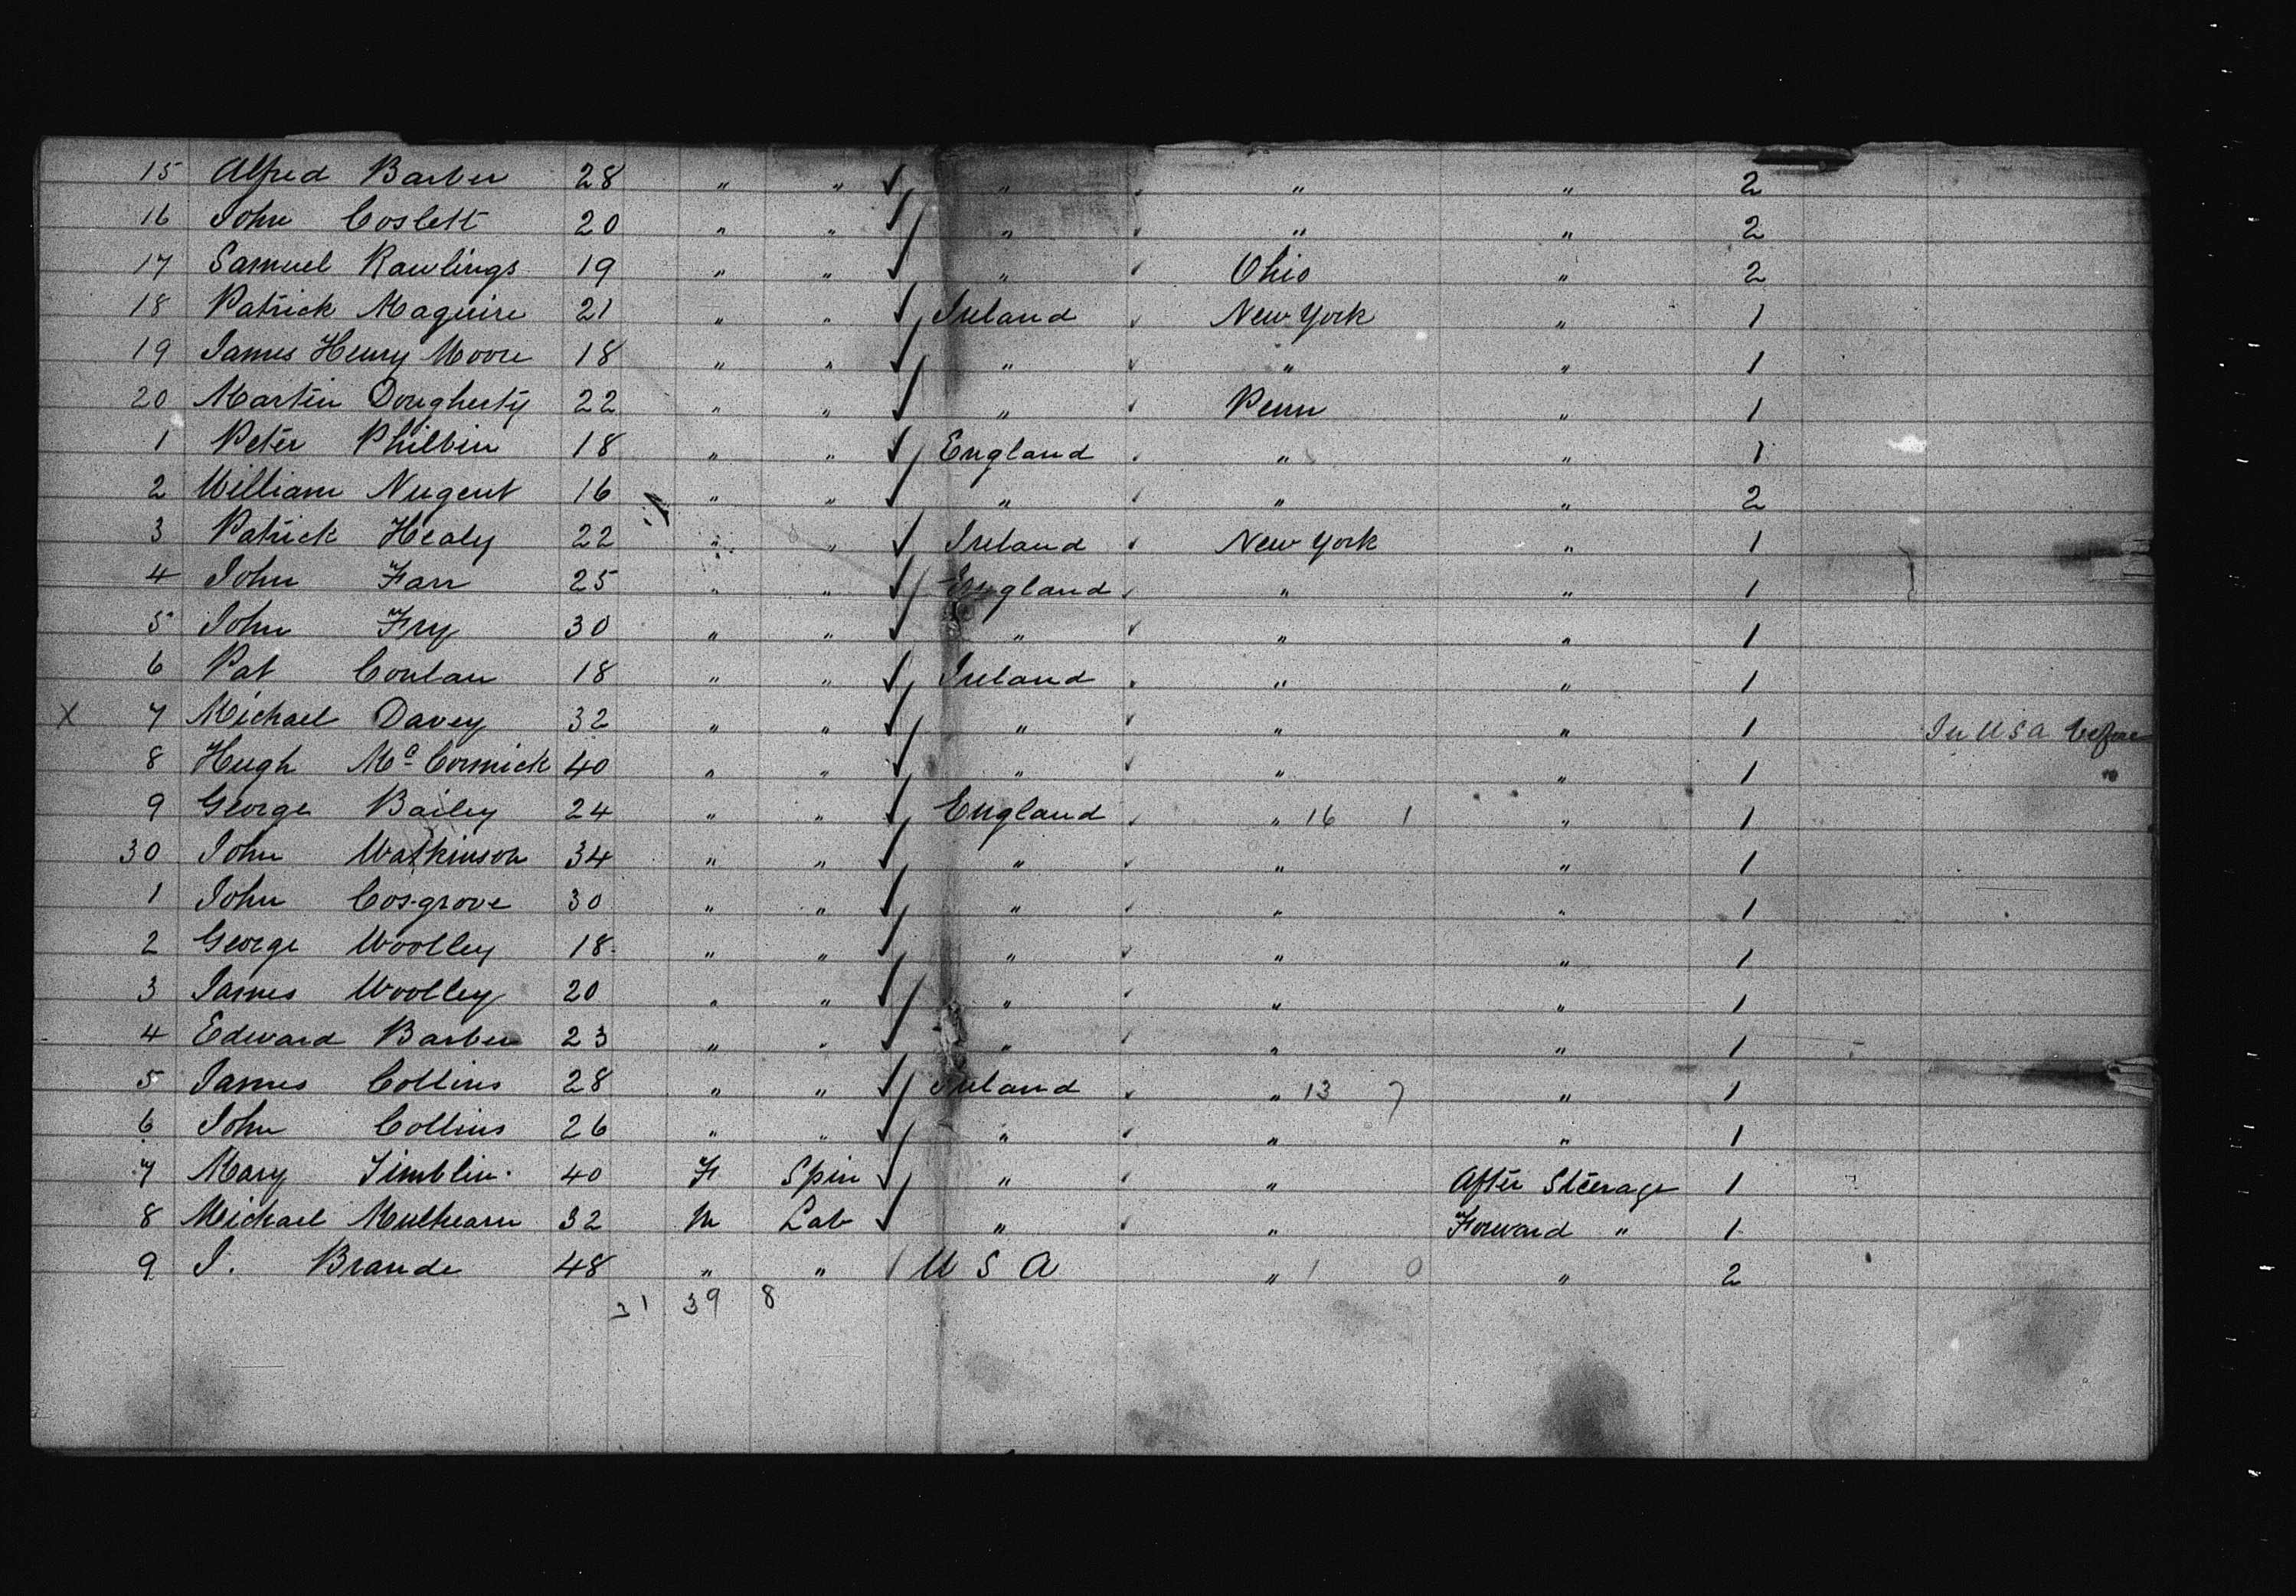 15 Alfred Barber 28 " " ✓ " ✓ " " 2
16 John Coslett 20 " " ✓ " ✓ " " 2
17 Samuel Rawlings 19 " " ✓ " ✓ Ohio " 2
18 Patrick Maguire 21 " " ✓ Ireland ✓ New York " 1
19 James Henry Moore 18 " " ✓ " ✓ " " 1
20 Martin Dougherty 22 " " ✓ " ✓ Penn " 1
1 Peter Philbin 18 " " ✓ England ✓ " " 1
2 William Nugent 16 " " ✓ " ✓ " " 2
3 Patrick Healy 22 " " ✓ Ireland ✓ New York " 1
4 John Farr 25 " " ✓ England ✓ " " 1
5 John Fry 30 " " ✓ " ✓ " " 1
6 Pat Conlan 18 " " ✓ Ireland ✓ " " 1
X 7 Michael Davey 32 " " ✓ " ✓ " " 1 In U S A before
8 Hugh McCormick 40 " " ✓ " ✓ " " 1 "
9 George Bailey 24 " " ✓ England ✓ " 16 1 " 1
30 John Watkinson 34 " " ✓ " ✓ " " 1
1 John Cosgrove 30 " " ✓ " ✓ " " 1
2 George Woolley 18 " " ✓ " ✓ " " 1
3 James Woolley 20 " " ✓ " ✓ " " 1
4 Edward Barber 23 " " ✓ " ✓ " " 1
5 James Collins 28 " " ✓ Ireland ✓ " 13 7 " 1
6 John Collins 26 " " ✓ " ✓ " " 1
7 Mary Timblin 40 F Spin ✓ " ✓ " After Steerage 1
8 Michael Mulhearn 32 M Lab ✓ " ✓ " Forward " 1
9 J. Brande 48 " " / U S A " 1 0 " 2
31 39 8